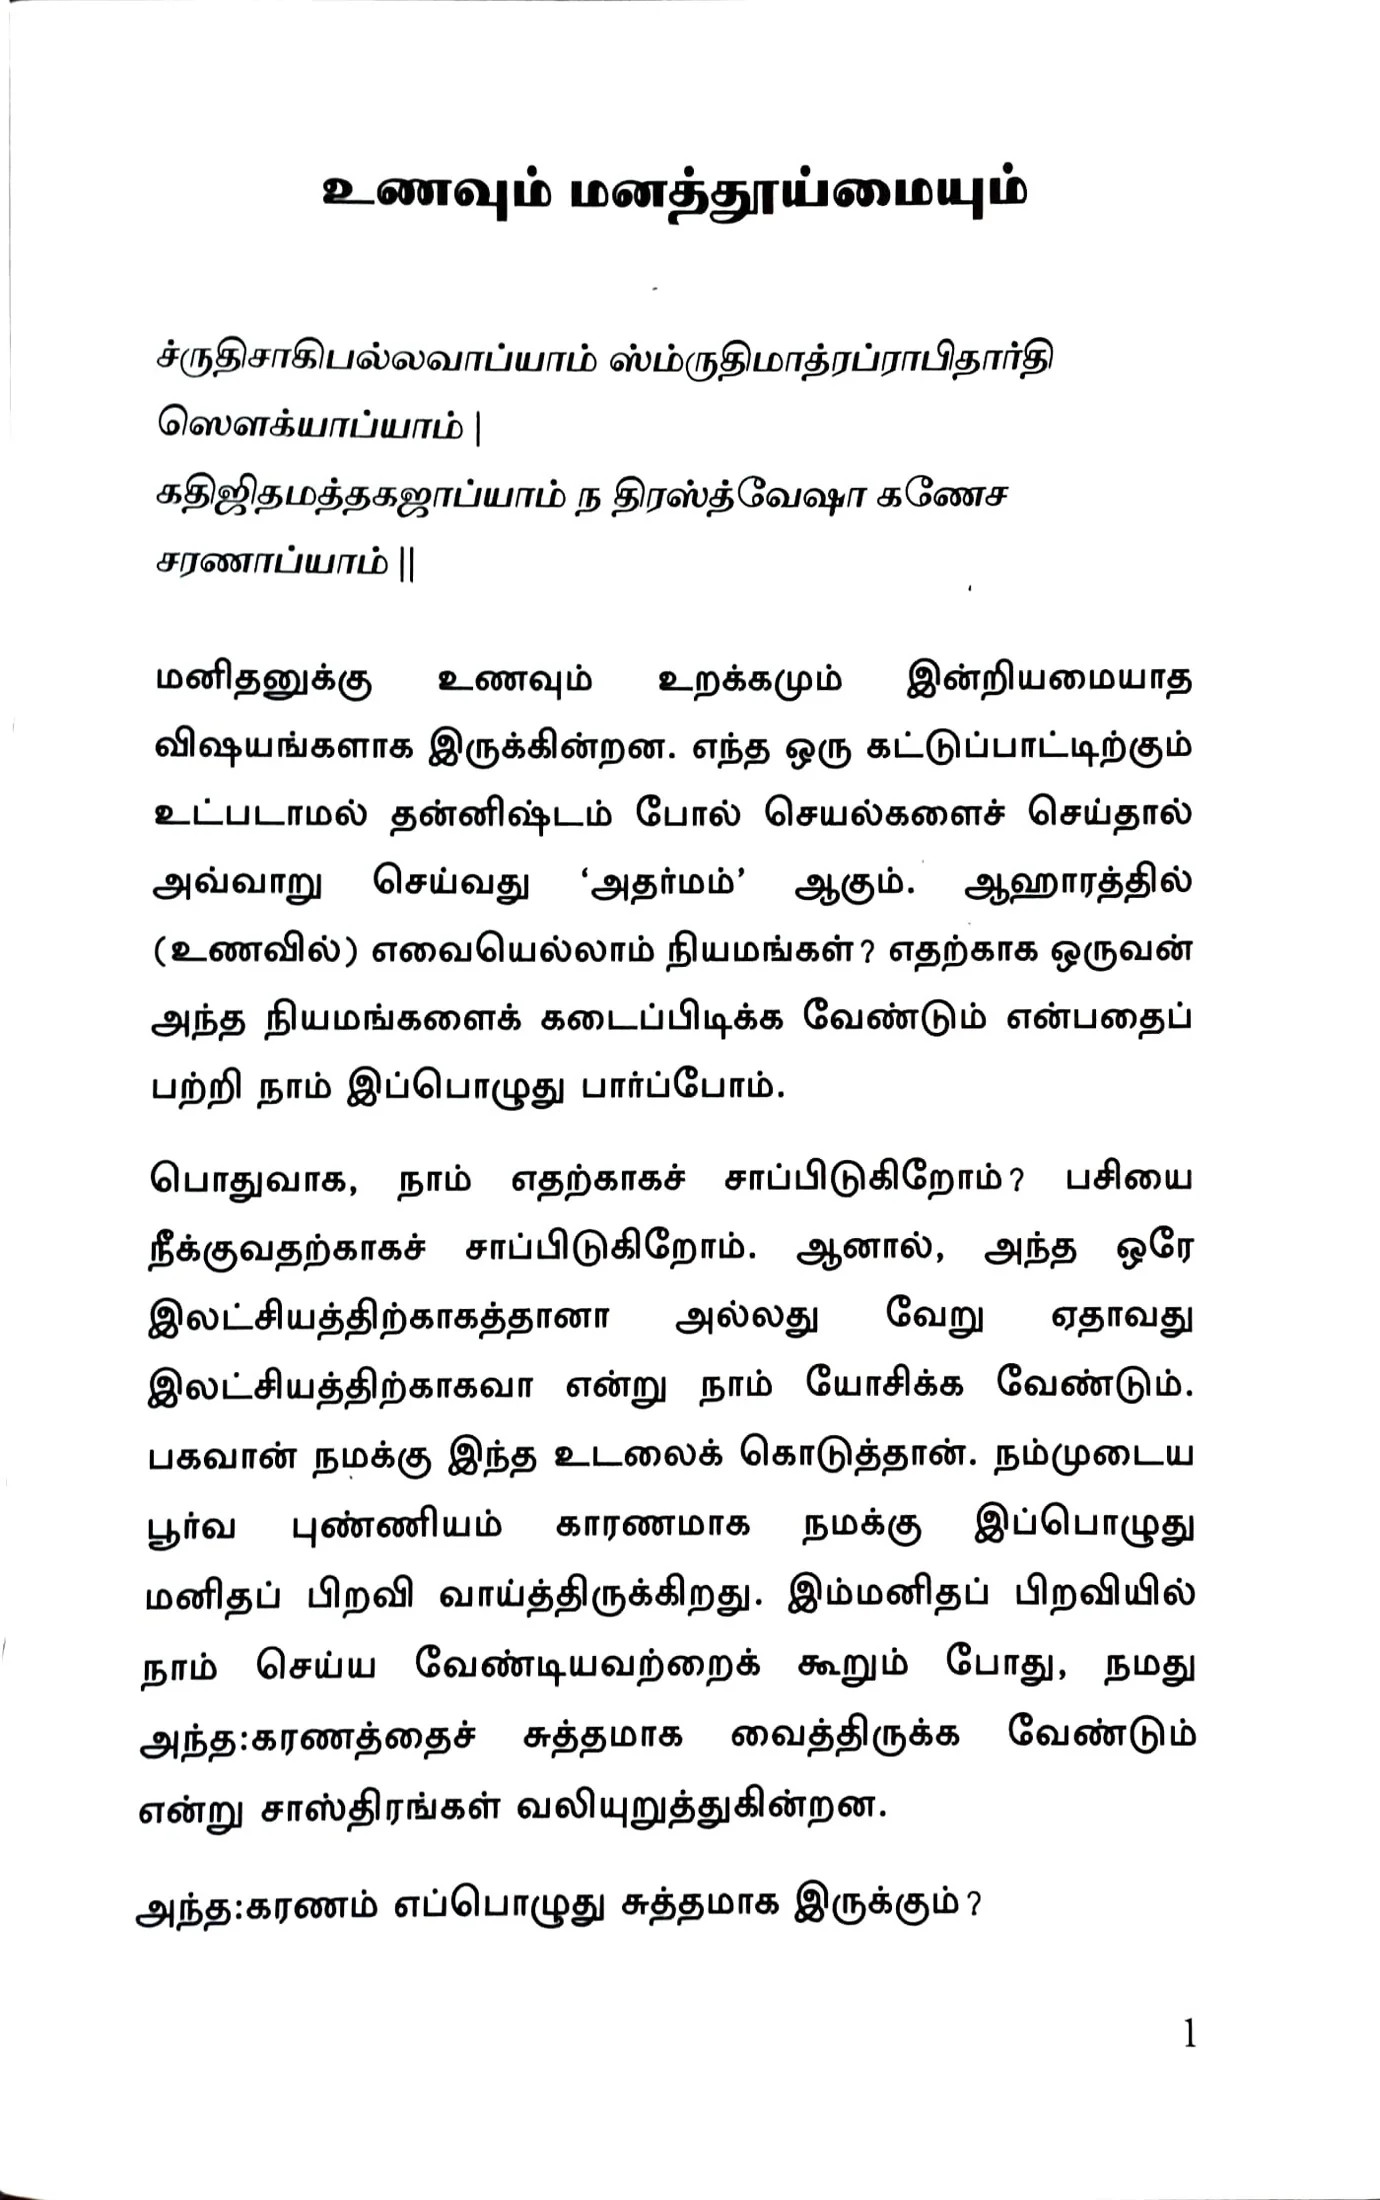 உணவும் மனத்தூய்மையும்
ச்ருதிசாகிபல்லவாப்யாம் ஸ்ம்ருதிமாத்ரப்ராபிதார்தி
ஸௌக்யாப்யாம் |
கதிஜிதமத்தகஜாப்யாம் ந திரஸ்த்வேஷா கணேச
சரணாப்யாம் ||
மனிதனுக்கு உணவும் உறக்கமும் இன்றியமையாத
விஷயங்களாக இருக்கின்றன. எந்த ஒரு கட்டுப்பாட்டிற்கும்
உட்படாமல் தன்னிஷ்டம் போல் செயல்களைச் செய்தால்
அவ்வாறு செய்வது ‘அதர்மம்’ ஆகும். ஆஹாரத்தில்
(உணவில்) எவையெல்லாம் நியமங்கள்? எதற்காக ஒருவன்
அந்த நியமங்களைக் கடைப்பிடிக்க வேண்டும் என்பதைப்
பற்றி நாம் இப்பொழுது பார்ப்போம்.
பொதுவாக, நாம் எதற்காகச் சாப்பிடுகிறோம்? பசியை
நீக்குவதற்காகச் சாப்பிடுகிறோம். ஆனால், அந்த ஒரே
இலட்சியத்திற்காகத்தானா அல்லது வேறு ஏதாவது
இலட்சியத்திற்காகவா என்று நாம் யோசிக்க வேண்டும்.
பகவான் நமக்கு இந்த உடலைக் கொடுத்தான். நம்முடைய
பூர்வ புண்ணியம் காரணமாக நமக்கு இப்பொழுது
மனிதப் பிறவி வாய்த்திருக்கிறது. இம்மனிதப் பிறவியில்
நாம் செய்ய வேண்டியவற்றைக் கூறும் போது, நமது
அந்த:கரணத்தைச் சுத்தமாக வைத்திருக்க வேண்டும்
என்று சாஸ்திரங்கள் வலியுறுத்துகின்றன.
அந்த:கரணம் எப்பொழுது சுத்தமாக இருக்கும்?
1